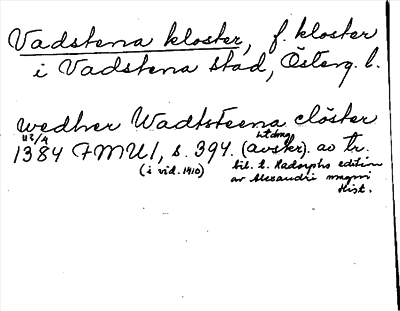 Vadstena kloster, f. kloster
i Vadstena stad, Österg. l.
wedher Wadtsteena clöster
23/4 utdrag
1384 FMU 1, s. 394. (avskr). av tr.
(i vid. 1910) bil. t. Hadorphs edition
av Alexandri magni
Hist.